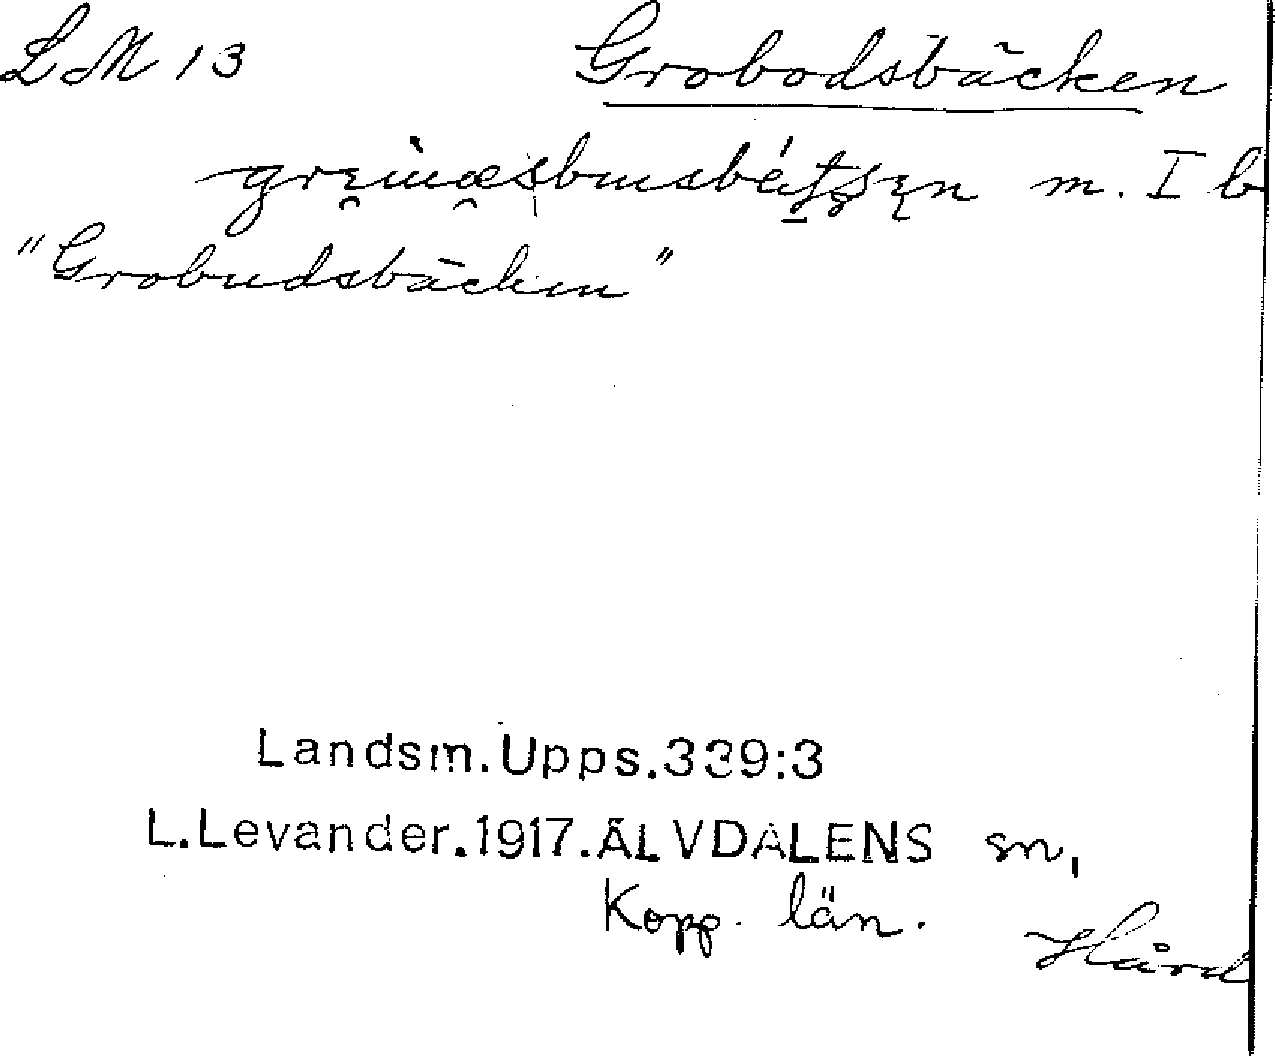 LM 13 Grobodsbäcken
m. I b
"Grobudsbäcken"
Landsm.Upps.339:3
L.Levander.1917.ÄLVDALENS sn,
Kopp. län.
Hård